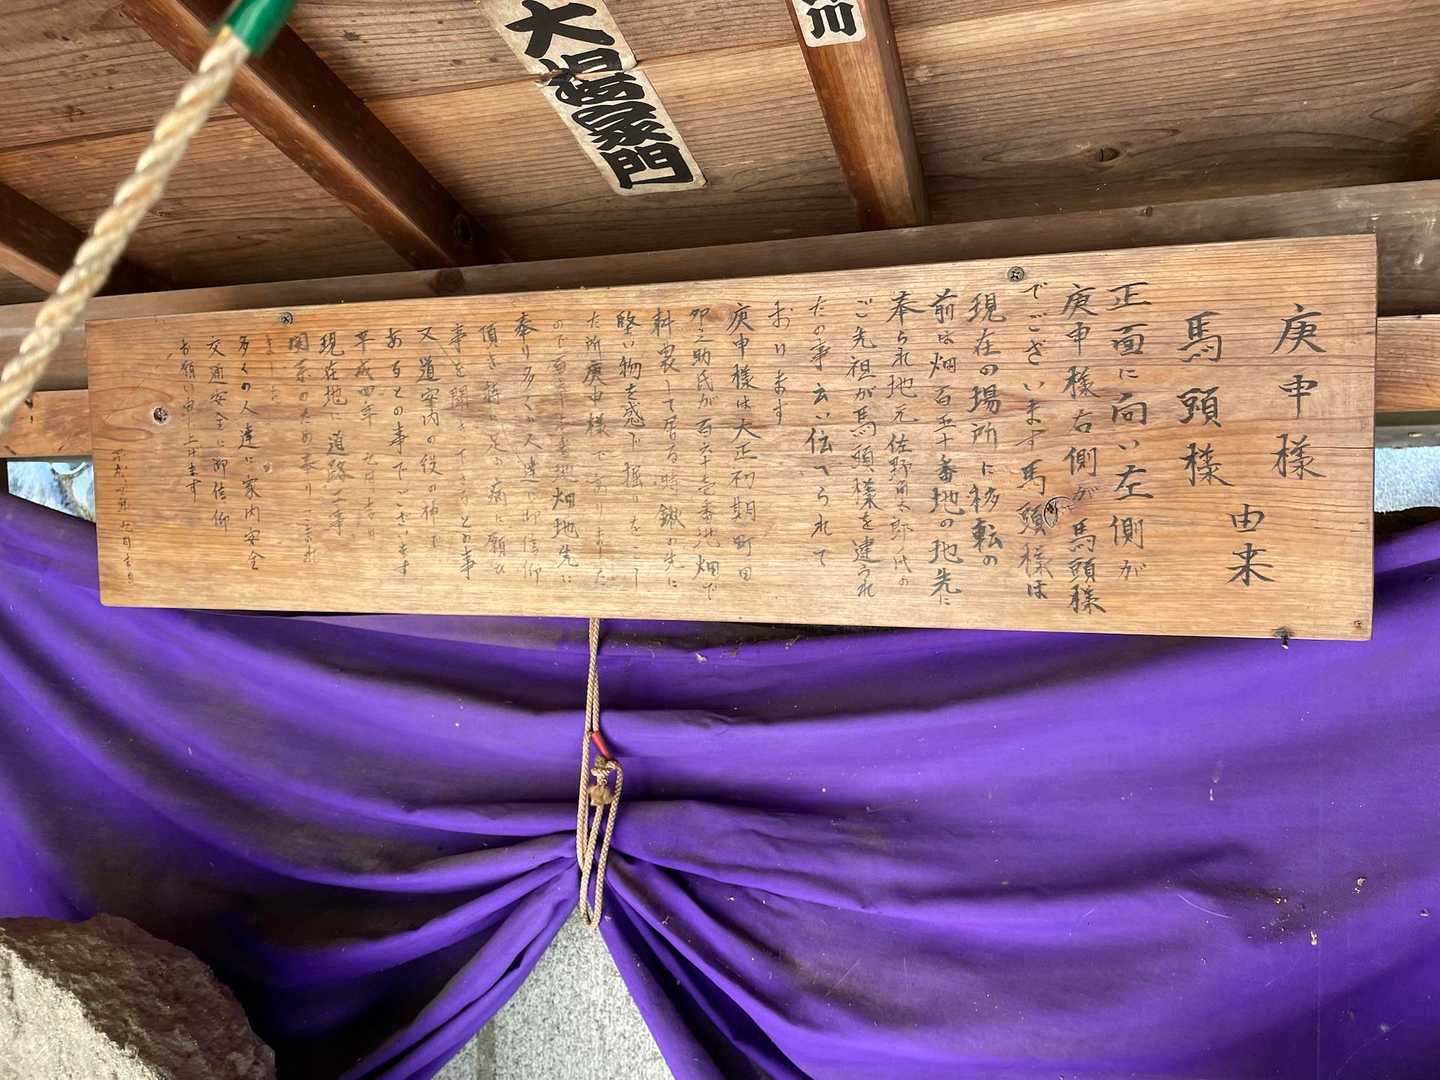 大澤家門
川
庚申様
馬頭様
由来
正面に向い左側が
庚申様右側が馬頭様
でございます馬頭様は
現在の場所に移転の
前は畑百五十番地の地先に
奉られ地元佐野 太郎氏の
ご先祖が馬頭様を建られ
たの事云い伝へられて
おります
庚申様は大正初期町田
卯之助氏が百六十壱番地畑で
耕農して居る時鍬の先に
堅い物を感じ掘り
た所庚申様でありました
の下 番地畑地先に
奉り多くの人達に御信仰
頂き特に足の病に願い
事を聞き との事
又道案内の役の神で
あるとの事でございます
平成四年
現在地に道路工事
関係のため奉り
ました
多くの人達に家内安全
交通安全に御信仰
お願い申し上げます
平成